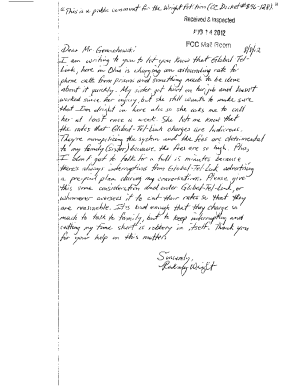 "This is a public comment for the Wright Petition (CC Docket # 96-128)."
Received & Inspected
FEB 14 2012
FCC Mail Room
Dear Mr. 2/8/12
I am writing to let you know that Global Tel-
Link, here in Ohio is charging an astounding rate for
phone calls from prison and something needs to be done
about it quickly. My sister got hurt on her job and hasn't
worked since her injury, but she still wants to make sure
that I'm alright in here also so she asks me to call
her at least once a week. She lets me know that
the rates that Global-Tel-Link charges are ludicrous.
They're monopolizing the system and the fees are detrimental
to my family (sister) because the fees are so high. Plus,
I don't get to talk for a full 15 minutes because
there's always interruptions from Global-Tel-Link advertising
a pre-paid plan during my conversation. Please give
this some consideration and order Global-Tel-Link, or
whomever oversees it to cut their rates so that they
are reasonable. It's bad enough that they charge so
much to talk to family, but to keep interrupting and
cutting my time short is robbery in itself. Thank you
for your help on this matter.
Sincerely,
Wright